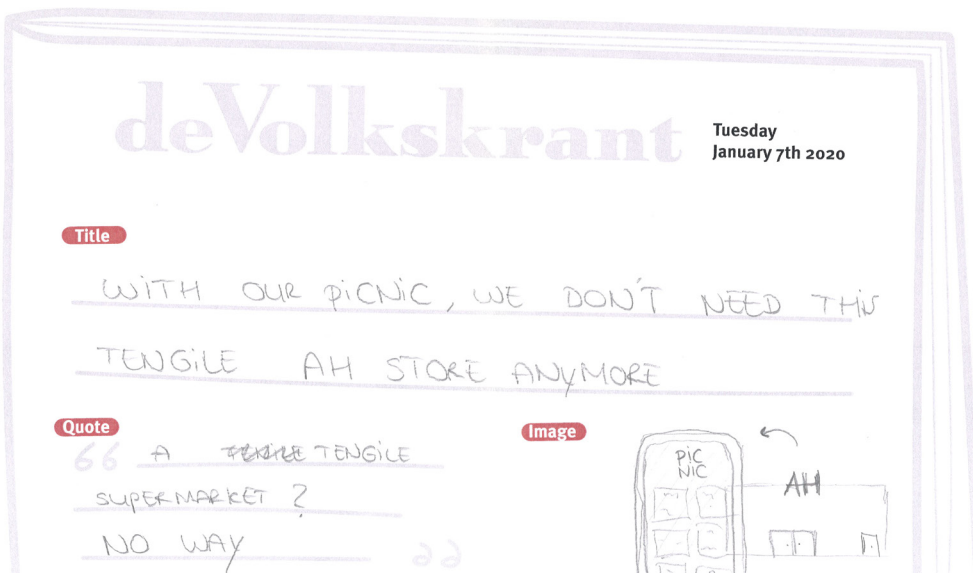 deVolkskrant
Tuesday
January 7th 2020
Title
WITH OUR PICNIC, WE DON'T NEED THIS
TENGILE AH STORE ANYMORE
Quote
A TENGILE
SUPERMARKET ?
NO WAY
Image
PIC
NIC
AH